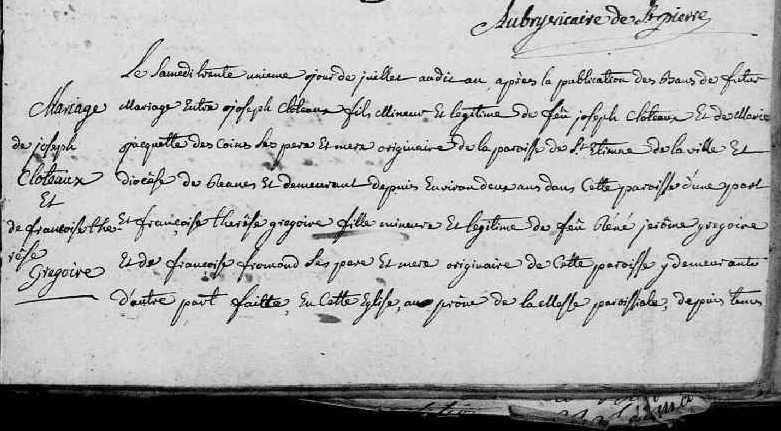 Aubry vicaire de St pierre
Mariage
de joseph
Cloteaux
Et
de francoise the-
rése
Gregoire
Le Samedi trente unieme jour de juillet audit an, après la publication des bans de futur
Mariage Entre joseph Cloteaux fils Mineur Et legitime de feû joseph Cloteaux Et de Marie
jacquette des Coins Ses pere Et mere originaire de la paroisse de St Etienne de la ville Et
diocése de Renes Et demeurant depuis Environ deux ans dans Cette paroisse d'une part
Et françoise therése gregoire fille mineure Et legitime de feû Réné jerôme gregoire
Et de françoise fromond Ses pere Et mere originaire de Cette paroisse y demeurante
d'autre part faitte, En Cette Eglise, au prône de la Messe paroissiale, depuis